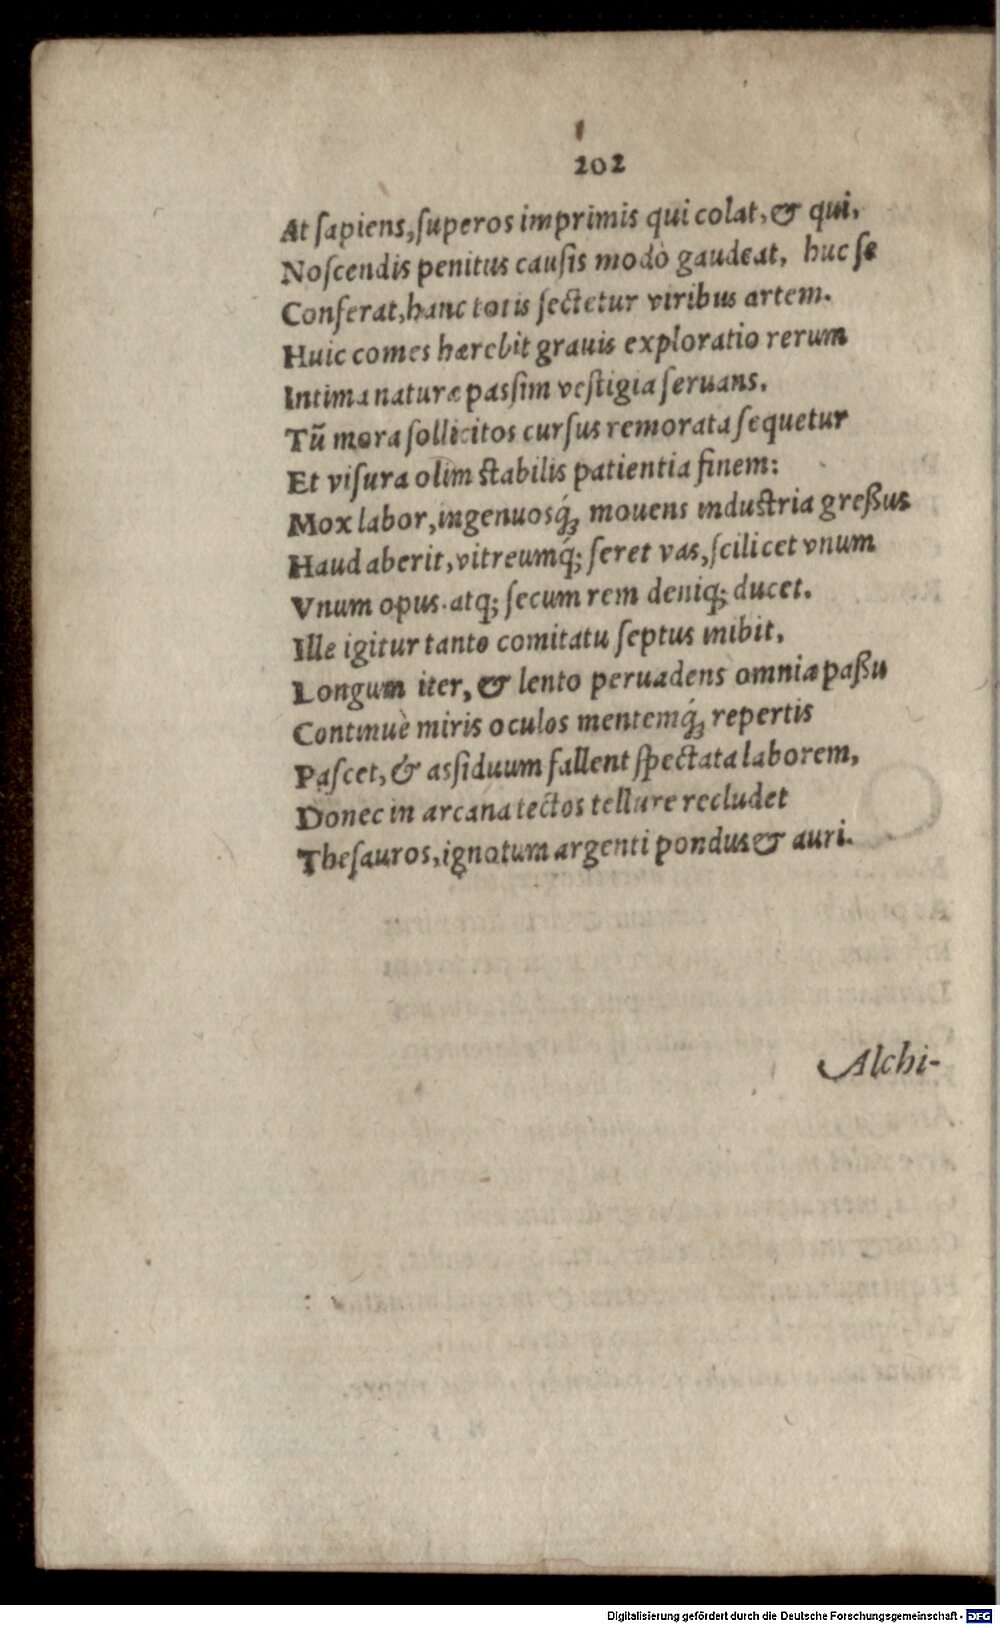 202
At ſapiens, ſuperos imprimis qui colat, & qui,
Noſcendis penitus cauſis modò gaudeat, huc ſe
Conferat, hanc totis ſectetur viribus artem.
Huic comes hærebit grauis exploratio rerum
Intima naturæ paſſim veſtigia ſeruans.
Tū mora ſollicitos curſus remorata ſequetur
Et viſura olim ſtabilis patientia finem:
Mox labor, ingenuosq́ꝫ mouens induſtria greßus
Haud aberit, vitreumq́; feret vas, ſcilicet vnum
Vnum opus. atq; ſecum rem deniq; ducet.
Ille igitur tanto comitatu ſeptus inibit,
Longum iter, & lento peruadens omnia paßu
Continuè miris oculos mentemq́ꝫ repertis
Paſcet, & aſsiduum fallent ſpectata laborem,
Donec in arcana tectos tellure recludet
Theſauros, ignotum argenti pondus & auri.
Alchi-
Digitalisierung gefördert durch die Deutsche Forschungsgemeinschaft - DFG